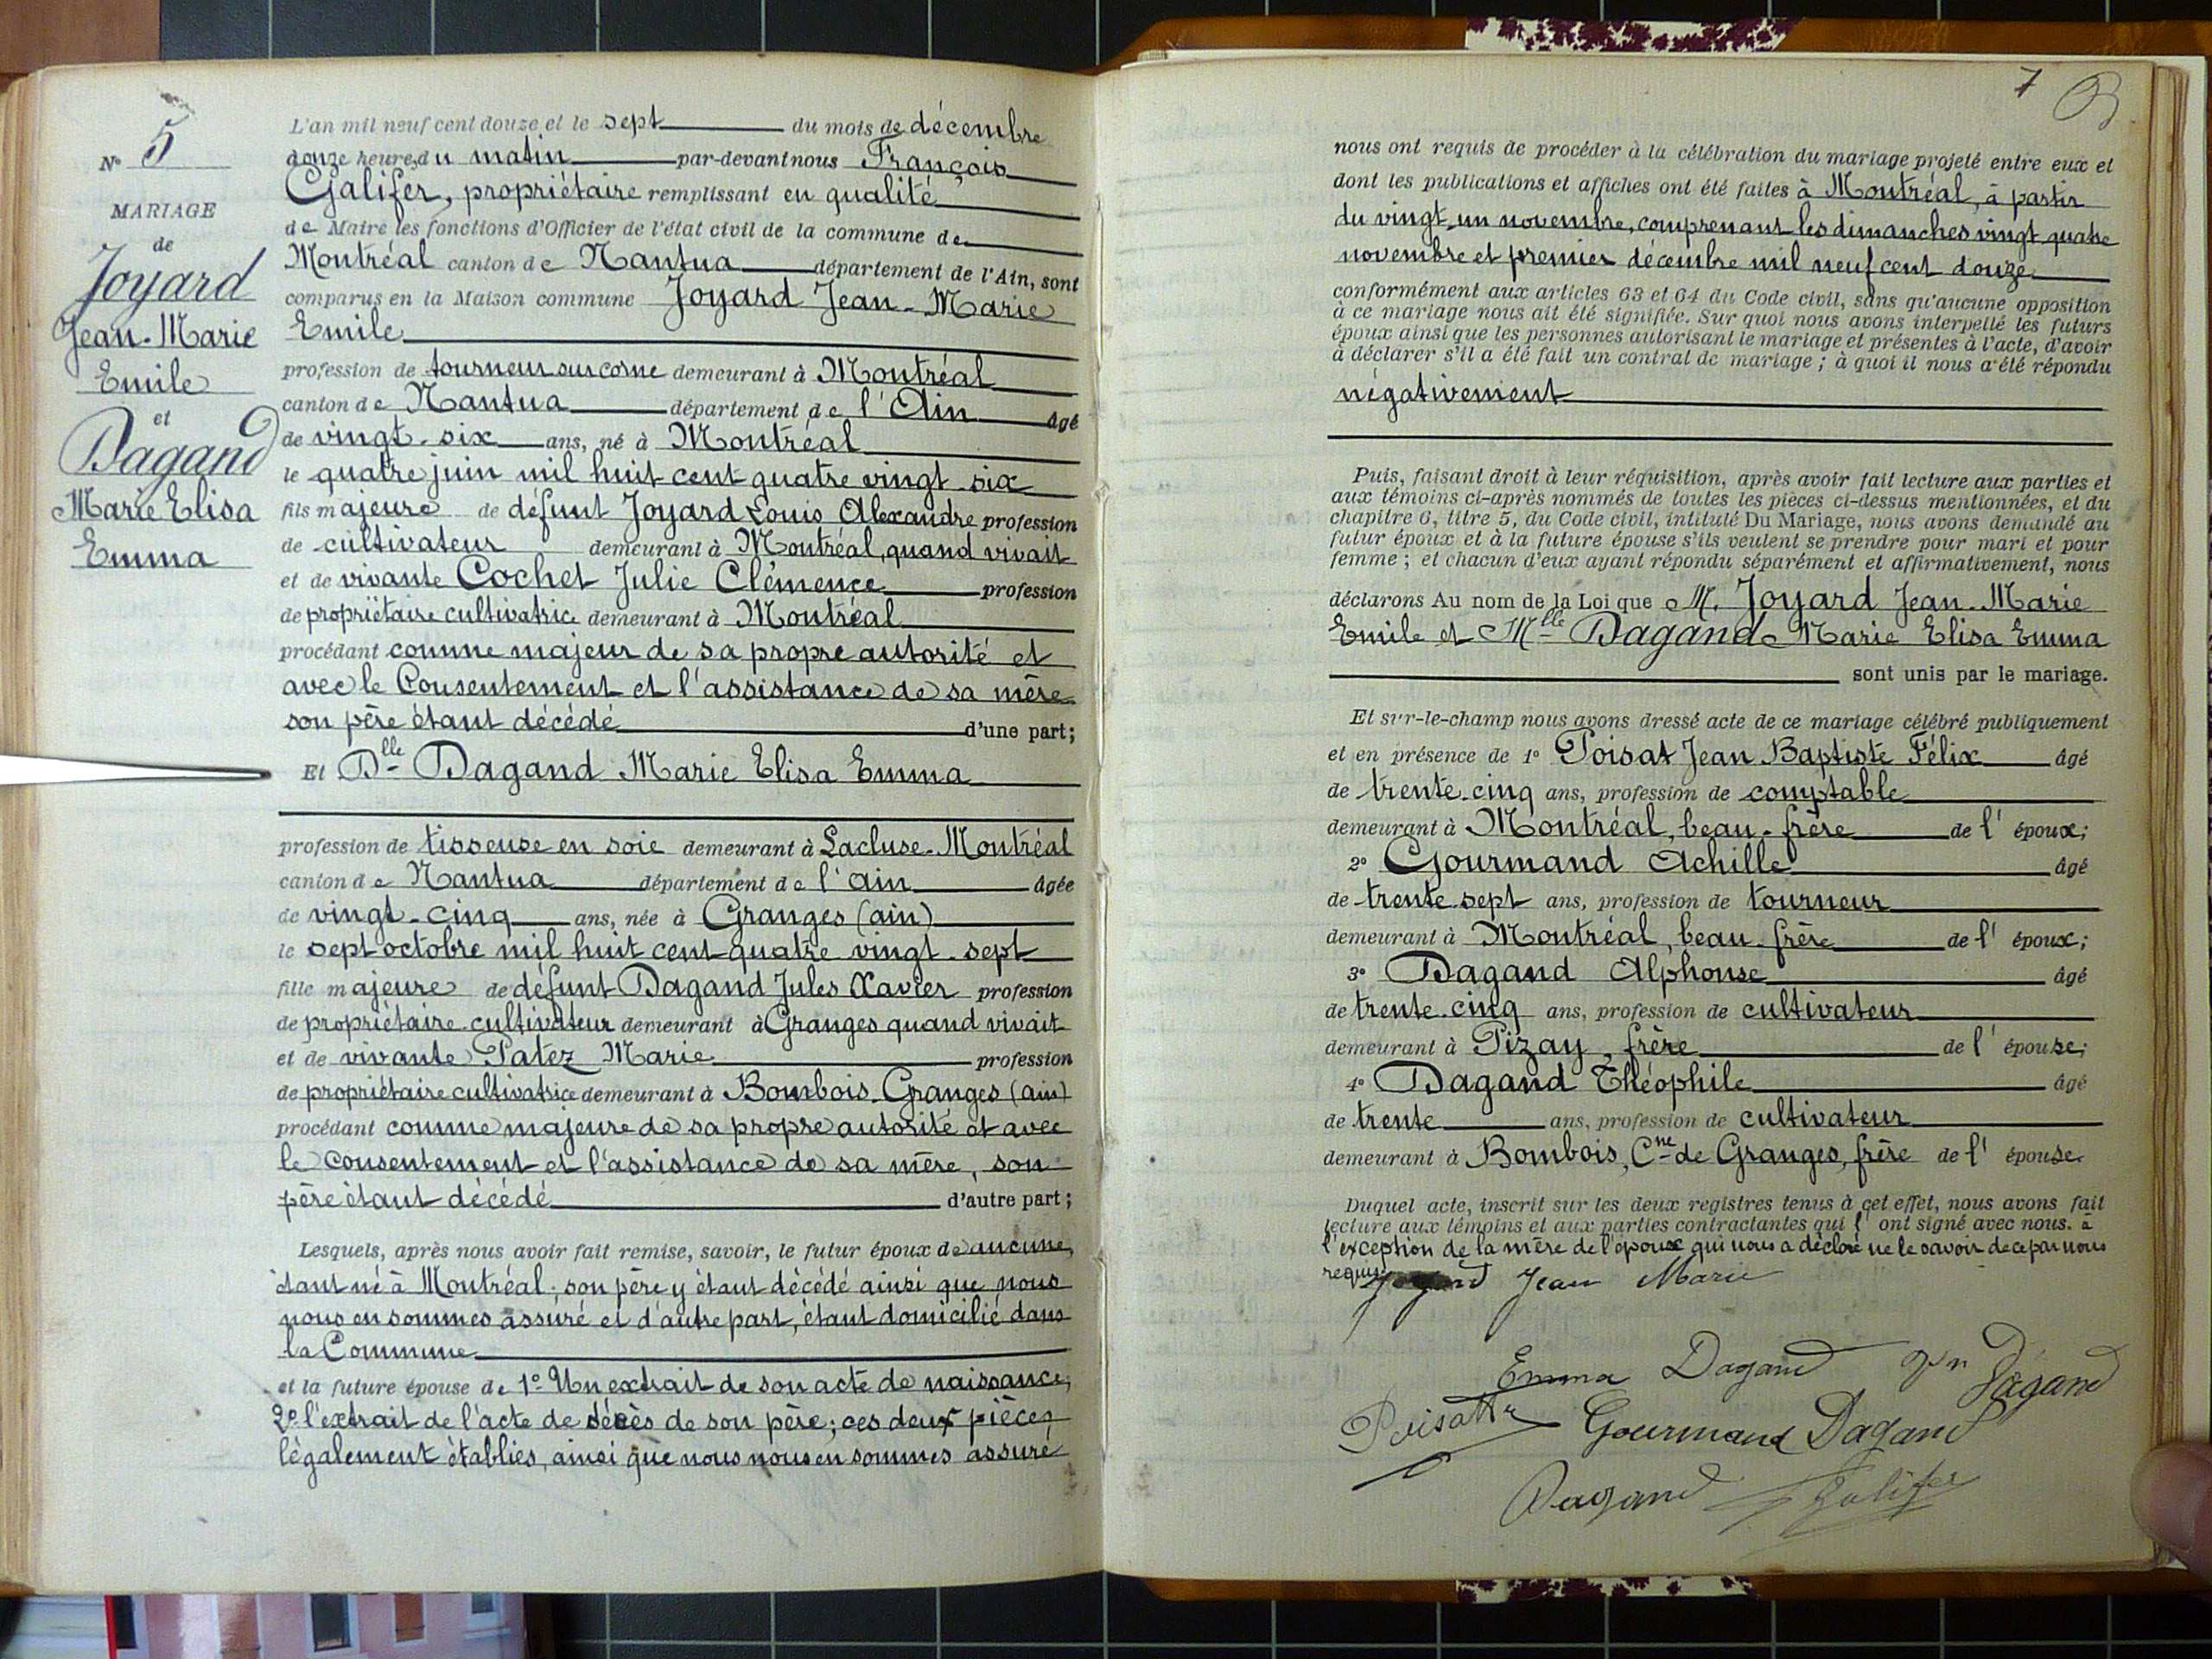 N° 5
MARIAGE
de
Joyard
Jean-Marie
Emile
et
Dagand
Marie Elisa
Emma
L'an mil neuf cent douze et le sept du mois de décembre
douze heures du matin par-devant nous François
Galifer, propriétaire remplissant en qualité
de Maire les fonctions d'Officier de l'état civil de la commune de
Montréal canton de Nantua département de l'Ain, sont
comparus en la Maison commune Joyard Jean-Marie
Emile
profession de tourneur sur corne demeurant à Montréal
canton de Nantua département de l'Ain âgé
de vingt-six ans, né à Montréal
le quatre juin mil huit cent quatre vingt-six
fils majeure de défunt Joyard Louis Alexandre profession
de cultivateur demeurant à Montréal, quand vivait
et de vivante Cochet Julie Clémence profession
de propriétaire cultivatrice demeurant à Montréal
procédant comme majeur de sa propre autorité et
avec le Consentement et l'assistance de sa mère
son père étant décédé d'une part;
Et Dlle Dagand Marie Elisa Emma
profession de tisseuse en soie demeurant à Lacluse-Montréal
canton de Nantua département de l'ain âgée
de vingt-cinq ans, née à Granges (ain)
le sept octobre mil huit cent quatre vingt-sept
fille majeure de défunt Dagand Jules Xavier profession
de propriétaire-cultivateur demeurant à Granges quand vivait
et de vivante Patez Marie profession
de propriétaire cultivatrice demeurant à Bombois-Granges (ain)
procédant comme majeure de sa propre autorité et avec
le consentement et l'assistance de sa mère, son
père étant décédé d'autre part;
Lesquels, après nous avoir fait remise, savoir, le futur époux de aucune,
étant né à Montréal; son père y étant décédé ainsi que nous
nous en sommes assuré et d'autre part, étant domicilié dans
la Commune
et la future épouse de 1° Un extrait de son acte de naissance,
2° l'extrait de l'acte de décès de son père; ces deux pièces
légalement établies, ainsi que nous nous en sommes assuré
7
nous ont requis de procéder à la célébration du mariage projeté entre eux et
dont les publications et affiches ont été faites à Montréal, à partir
du vingt-un novembre, comprenant les dimanches vingt quatre
novembre et premier décembre mil neuf cent douze
conformément aux articles 63 et 64 du Code civil, sans qu'aucune opposition
à ce mariage nous ait été signifiée. Sur quoi nous avons interpellé les futurs
époux ainsi que les personnes autorisant le mariage et présentes à l'acte, d'avoir
à déclarer s'il a été fait un contrat de mariage; à quoi il nous a été répondu
négativement
Puis, faisant droit à leur réquisition, après avoir fait lecture aux parties et
aux témoins ci-après nommés de toutes les pièces ci-dessus mentionnées, et du
chapitre 6, titre 5, du Code civil, intitulé Du Mariage, nous avons demandé au
futur époux et à la future épouse s'ils veulent se prendre pour mari et pour
femme; et chacun d'eux ayant répondu séparément et affirmativement, nous
déclarons Au nom de la Loi que M. Joyard Jean-Marie
Emile et Mlle Dagand Marie Elisa Emma
sont unis par le mariage.
Et sur-le-champ nous avons dressé acte de ce mariage célébré publiquement
et en présence de 1° Poisat Jean Baptiste Félix âgé
de trente-cinq ans, profession de comptable
demeurant à Montréal, beau-frère de l'époux;
2° Gourmand Achille âgé
de trente-sept ans, profession de tourneur
demeurant à Montréal, beau-frère de l'époux;
3° Dagand Alphonse âgé
de trente-cinq ans, profession de cultivateur
demeurant à Pizay, frère de l'épouse;
4° Dagand Théophile âgé
de trente ans, profession de cultivateur
demeurant à Bombois, Cne de Granges, frère de l'épouse.
Duquel acte, inscrit sur les deux registres tenus à cet effet, nous avons fait
lecture aux témoins et aux parties contractantes qui l'ont signé avec nous. à
l'exception de la mère de l'époux qui nous a déclaré ne le savoir de ce par nous
requis
Joyard Jean Marie
Emma Dagand Dagand
Poisat Gourmand Dagand
Dagand Galifer